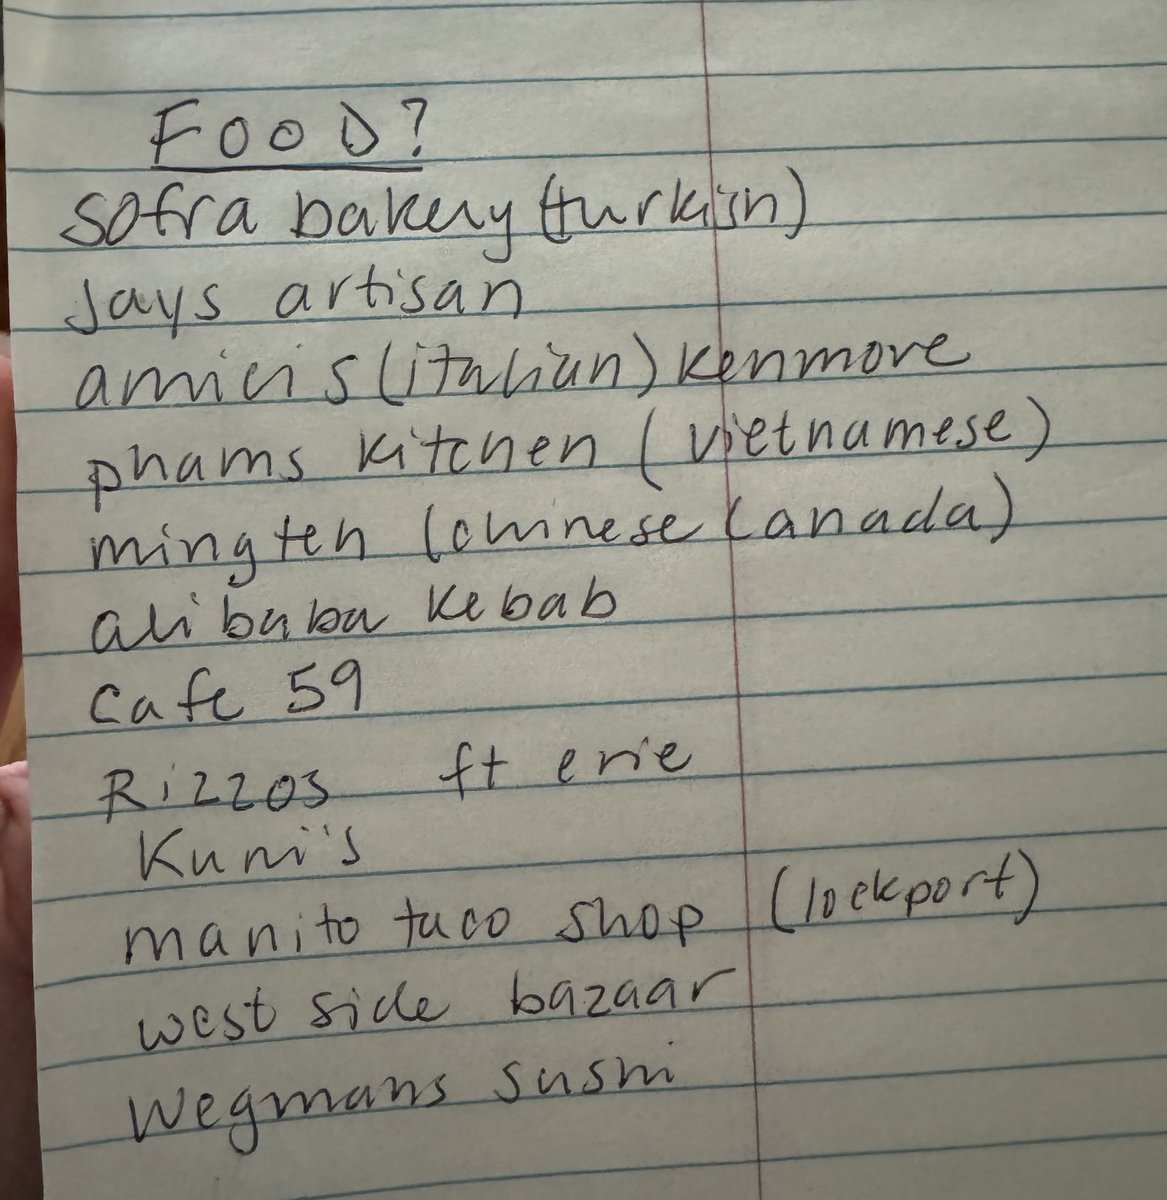 FOOD?
sofra bakery (turkish)
Jays artisan
amicis (italian) kenmore
phams kitchen (vietnamese)
mingteh (chinese canada)
alibaba kebab
cafe 59
Rizzos ft erie
Kuni's
manito taco shop (lockport)
west side bazaar
wegmans sushi